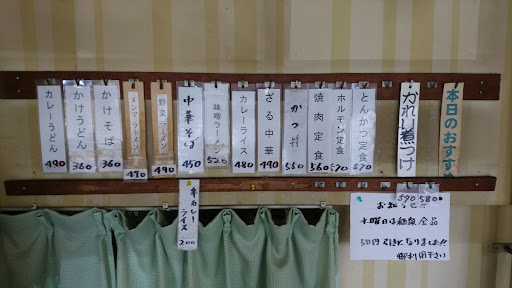 本日のおすすめ
かれい煮つけ
とんかつ定食
570
ホルモン定食
570
焼肉定食
560
かつ丼
550
ざる中華
490
カレーライス
480
味噌ラーメン
520
中華そば
450
野菜ラーメン
490
メンマラーメン
490
かけそば
360
かけうどん
360
カレーうどん
490
半カレーライス
200
570
580
お知らせ!!
木曜日は麺類全品
50円引きになりました!!
御利用下さい